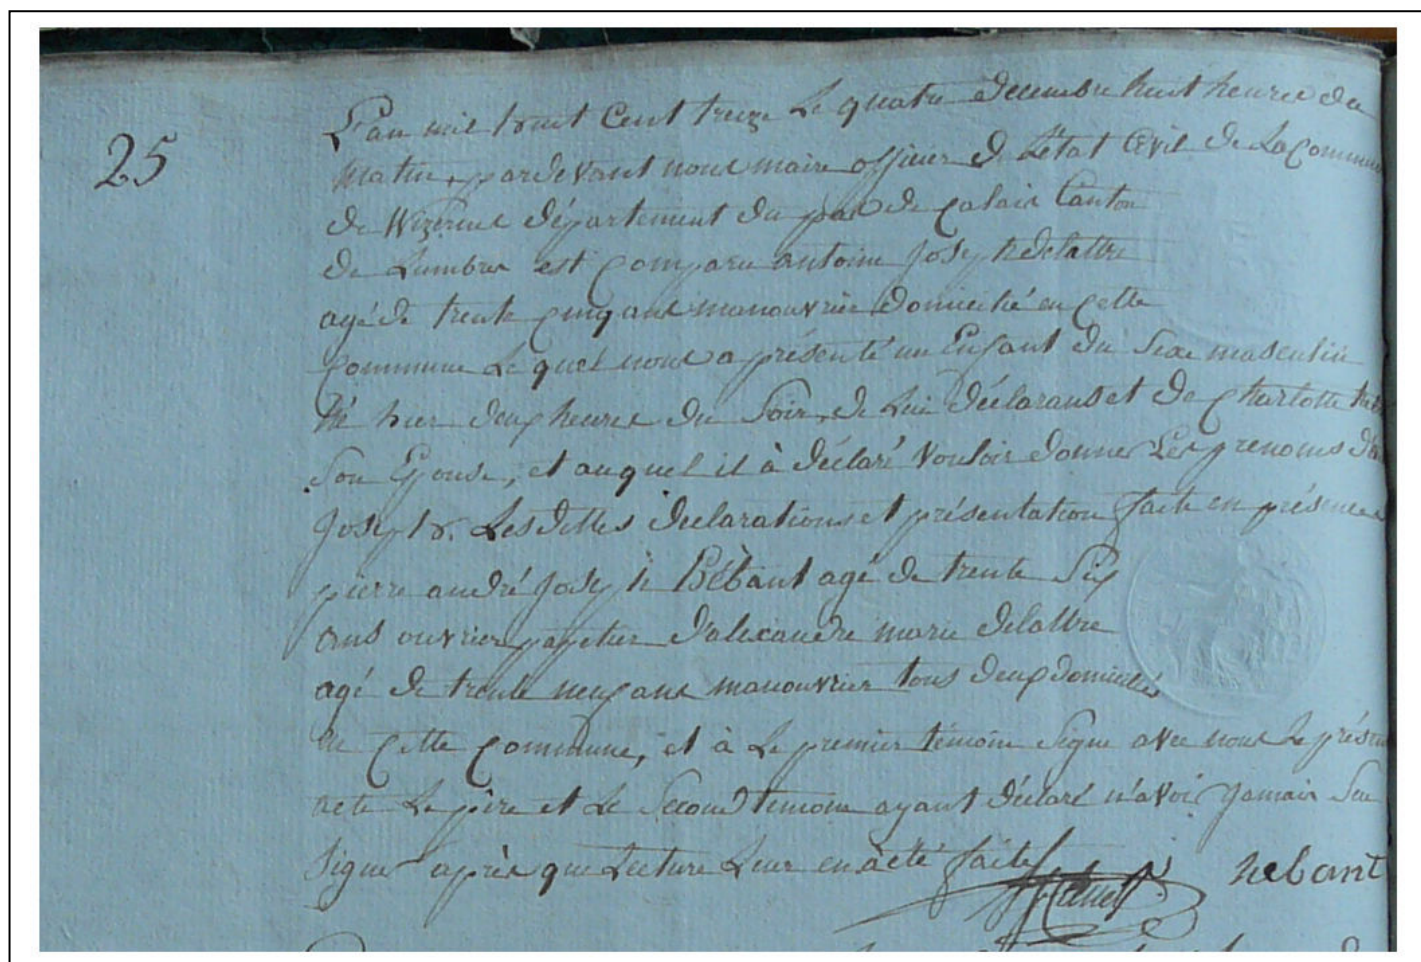 25
L'an mil huit Cent treize Le quatre decembre huit heures du
matin, pardevant nous maire officier de L'état Civil de La Commune
de Wizernes département du pas de Calais Canton
de Lumbres est Comparu antoine Joseph delattre
agé de trente Cinq ans manouvrier domicilié en Cette
Commune Le quel nous a présenté un Enfant du Sexe masculin
né hier deux heures du Soir, de Lui déclarant et de Charlotte
Son Epouse, et auquel il à déclaré Vouloir donner Les prenoms
Joseph. Lesdittes déclarations et présentation faite en présence
pierre andré Joseph hébant agé de trente Six
ans ouvrier papetier d'alexandre marie delattre
agé de trente neuf ans manouvrier tous deux domiciliés
en Cette Commune, et à Le premier témoin Signé avec nous Le présent
acte Le père et Le Second témoin ayant déclaré n'avoir Jamais Scu
Signer après que Lecture Leur en à été faite
hebant